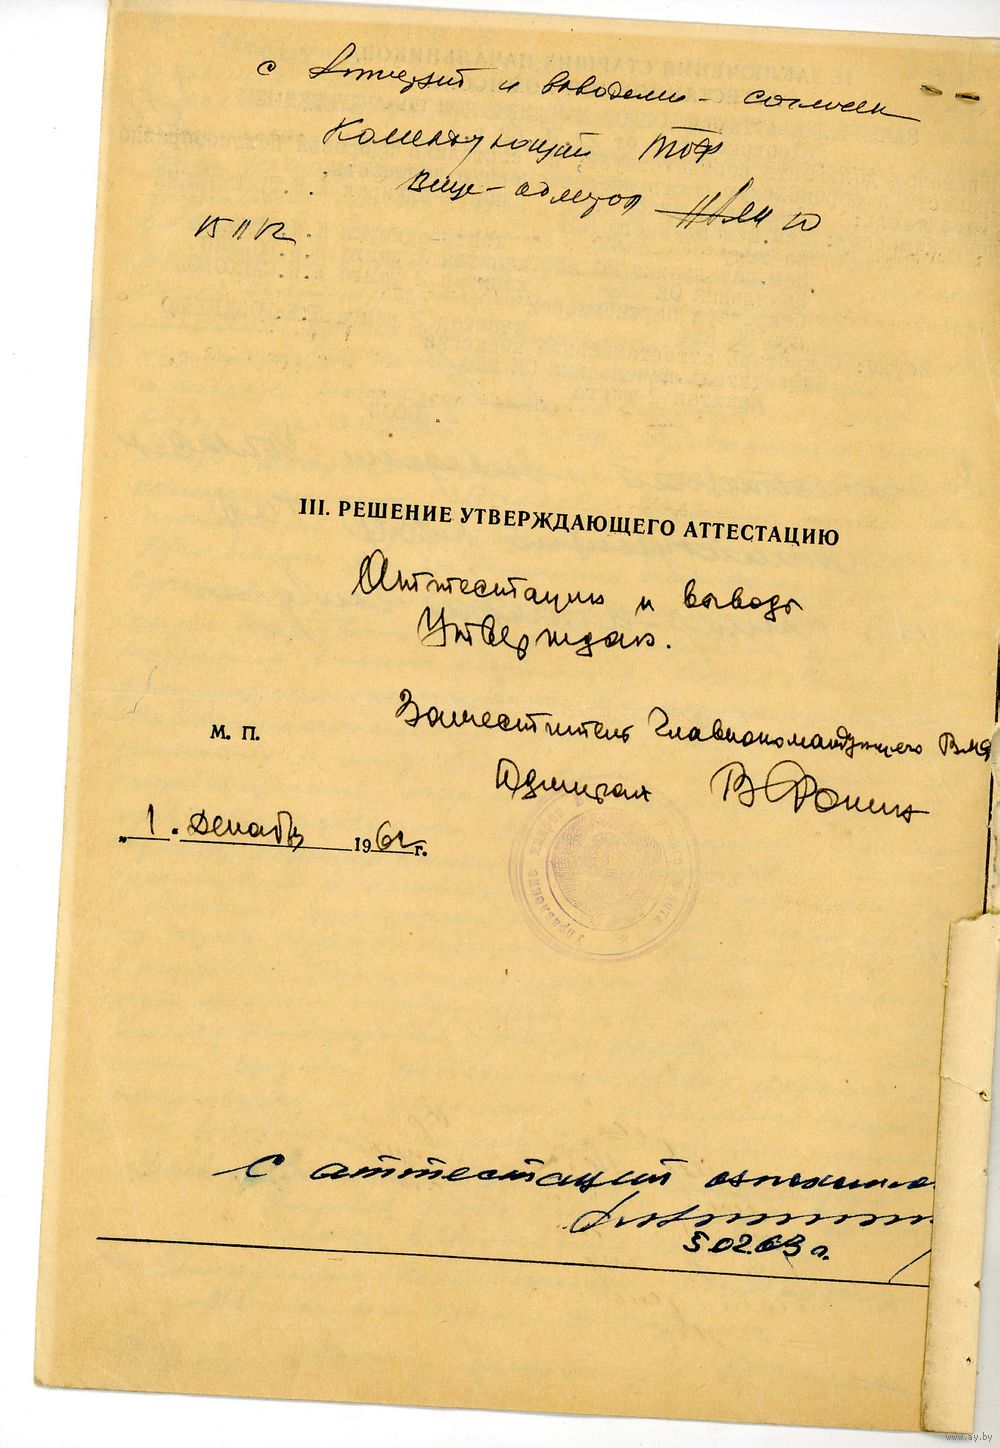 с аттестацией и выводами - согласен
Командующий ТОФ
Вице-адмирал
15 11 62
III. РЕШЕНИЕ УТВЕРЖДАЮЩЕГО АТТЕСТАЦИЮ
Аттестацию и выводы
Утверждаю.
Заместитель Главнокомандующего ВМФ
М. П.
Адмирал В Фокин
„ 1 . декабря 1962 г.
Управление
флота
С аттестацией ознакомлен
5.02.63 г.
www.ay.by